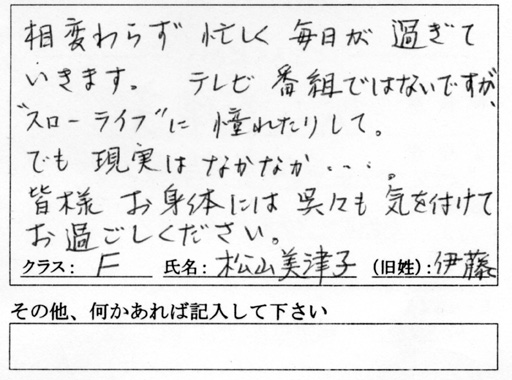 相変わらず 忙しく 毎日が 過ぎて
いきます。 テレビ 番組ではないですが、
"スローライフ"に 憧れたりして。
でも 現実は なかなか・・・。
皆様 お身体には 呉々も 気を付けて
お過ごしください。
クラス: F 氏名: 松山美津子 (旧姓):伊藤
その他、何かあれば記入して下さい